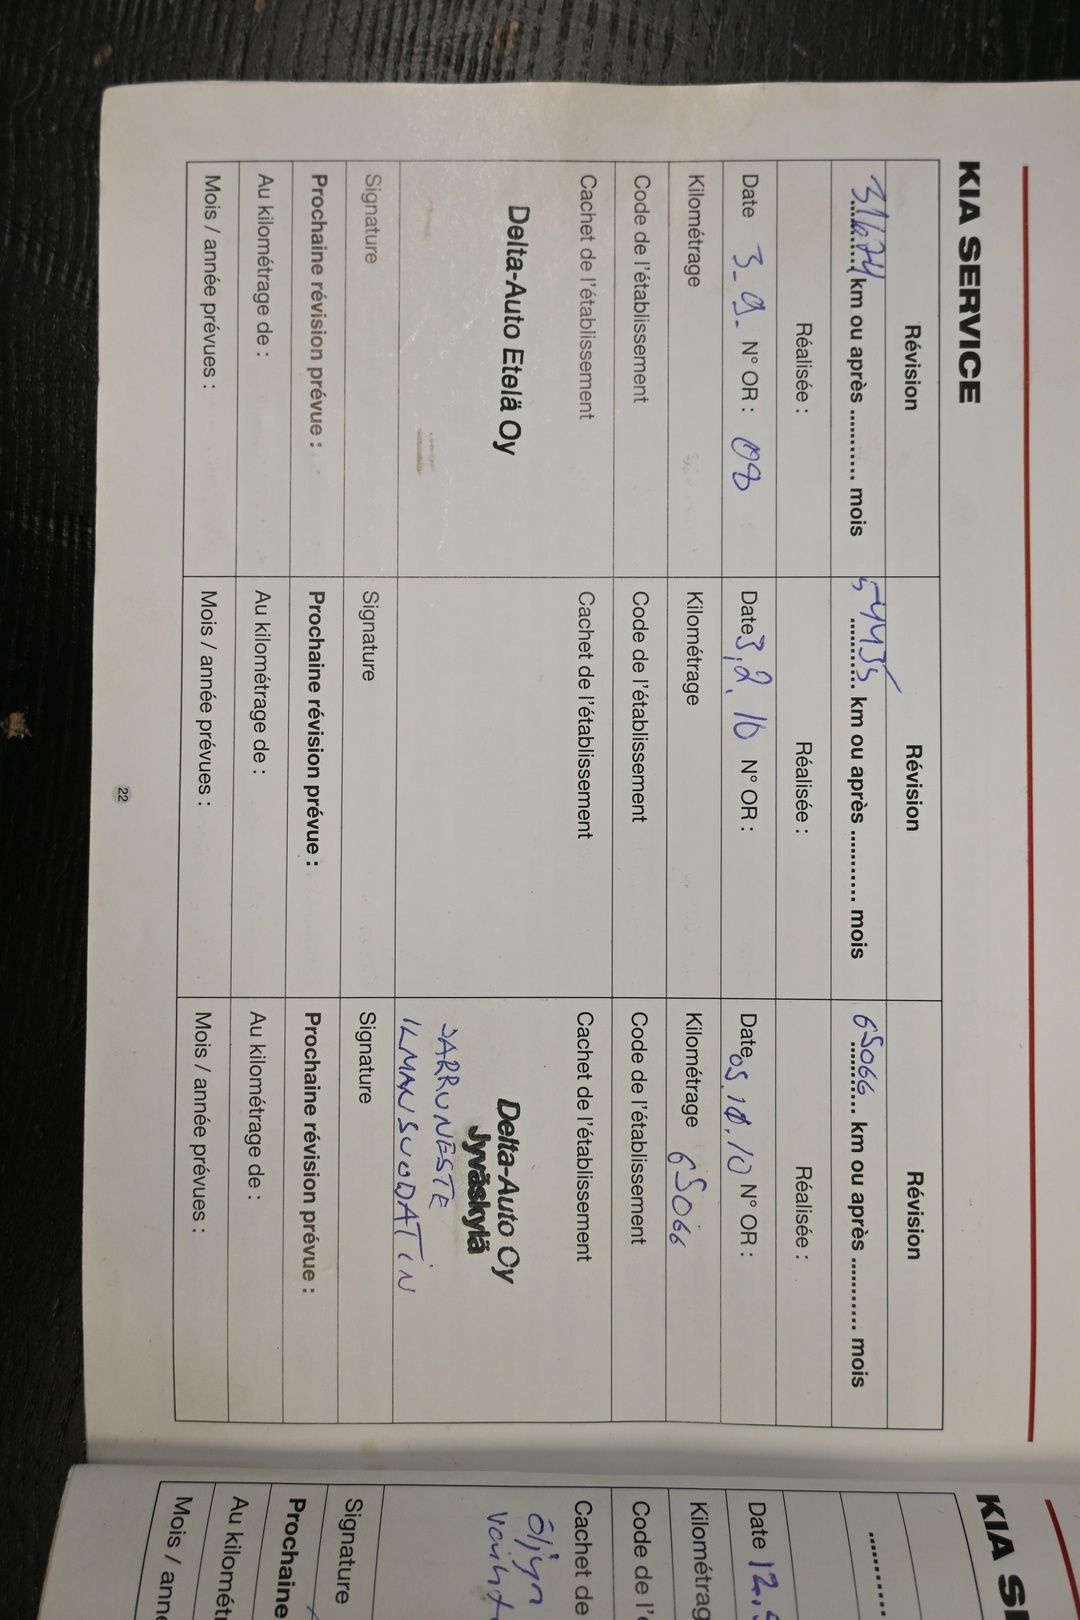 KIA SERVICE
Révision
31674 km ou après ........... mois
Réalisée :
Date 3-9- N° OR : 08
Kilométrage
Code de l'établissement
Cachet de l'établissement
Delta-Auto Etelä Oy
Signature
Prochaine révision prévue :
Au kilométrage de :
Mois / année prévues :
Révision
54435 km ou après ........... mois
Réalisée :
Date 3,2.10 N° OR :
Kilométrage
Code de l'établissement
Cachet de l'établissement
Signature
Prochaine révision prévue :
Au kilométrage de :
Mois / année prévues :
Révision
65066 km ou après ........... mois
Réalisée :
Date 05.10.10 N° OR :
Kilométrage 65066
Code de l'établissement
Cachet de l'établissement
Delta-Auto Oy
Jyväskylä
JARRUNESTE
ILMANSUODATIN
Signature
Prochaine révision prévue :
Au kilométrage de :
Mois / année prévues :
22
KIA S
Date 12.
Kilométrag
Code de l'é
Cachet de
öljyn
vaiht
Signature
Prochaine
Au kilomét
Mois / anné